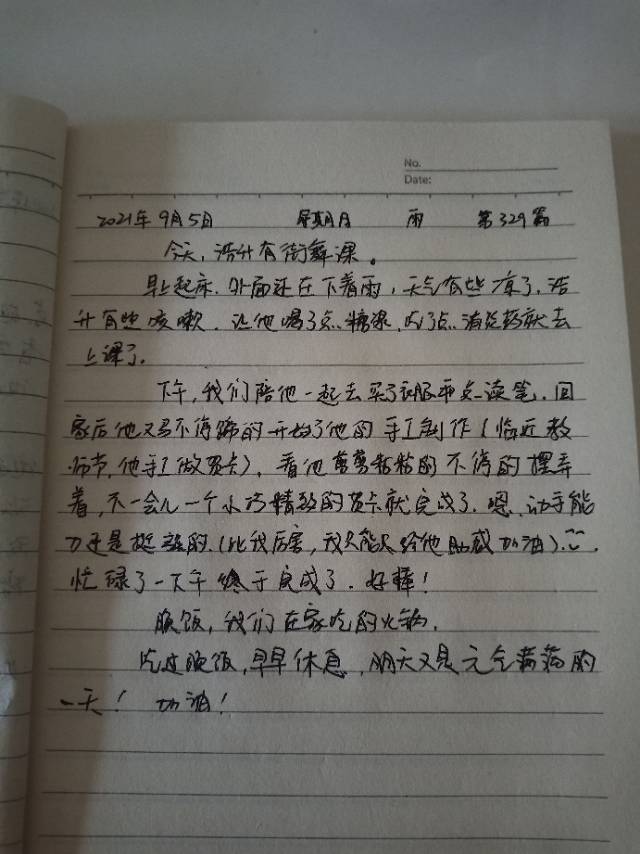 No.
Date:
2021年9月5日 星期日 雨 第329篇
今天，浩升有街舞课。
早上起床，外面还在下着雨，天气有些凉了，浩
升有些咳嗽，让他喝了点糖浆，吃了点消炎药就去
上课了。
下午，我们陪他一起去买了衣服和点读笔，回
家后他又马不停蹄的开始了他的手工制作（临近教
师节，他手工做贺卡），看他剪剪粘粘的不停的摆弄
着，不一会儿一个小巧精致的贺卡就完成了，嗯，动手能
力还是挺强的。（比我厉害，我只能只给他助威加油）。
忙碌了一下午终于完成了，好棒！
晚饭，我们在家吃的火锅。
吃过晚饭，早早休息，明天又是元气满满的
一天！ 加油！